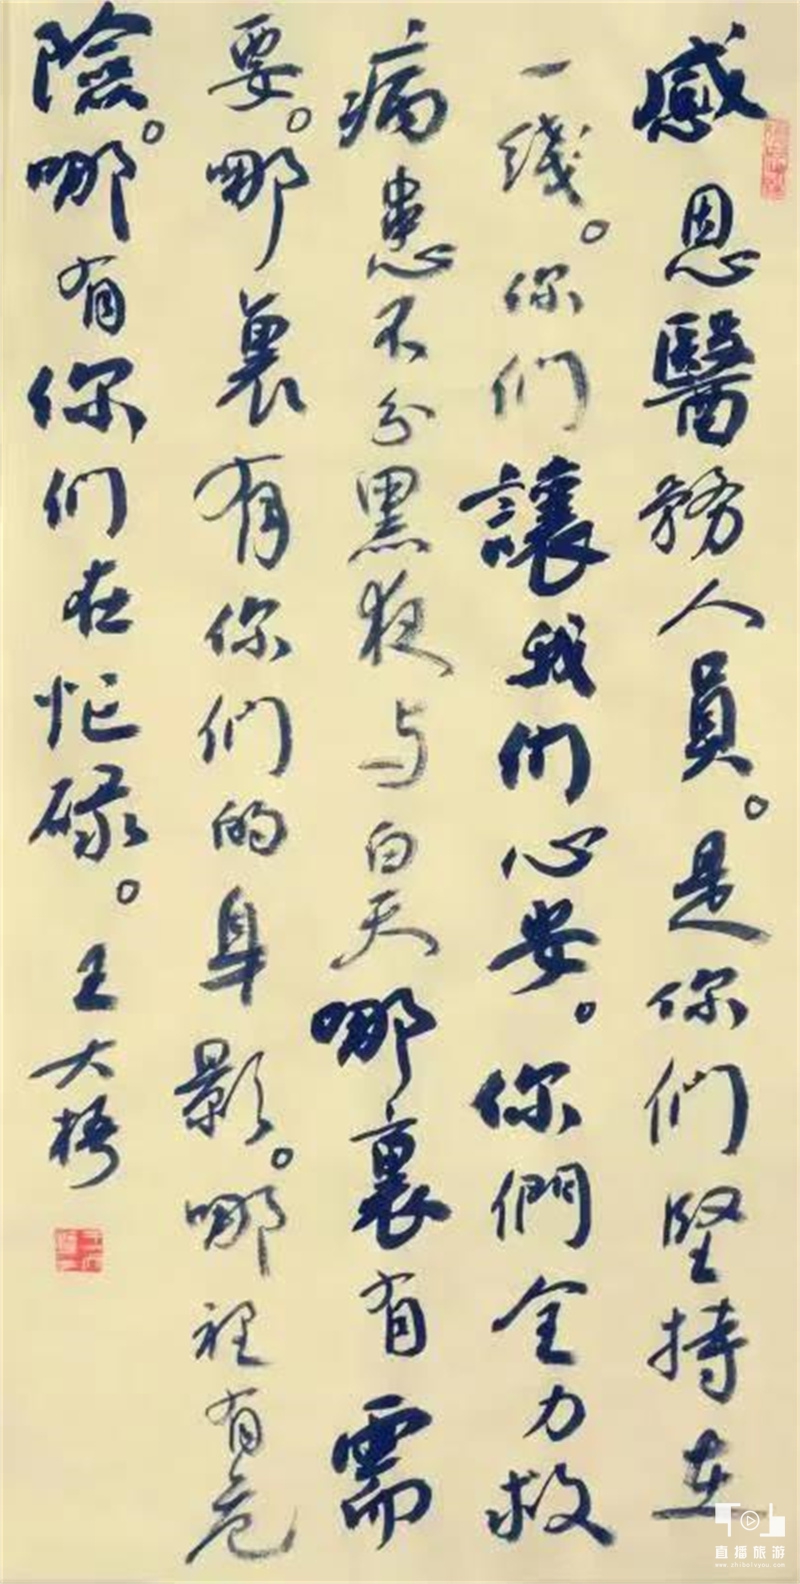 感恩醫務人員。是你们堅持在
一线。你们讓我们心安。你們全力救
病患不分黑夜与白天哪裏有需
要。哪裏有你们的身影。哪裡有危
險。哪有你们在忙碌。
王大梧
直播旅游
www.zhibolvyou.com